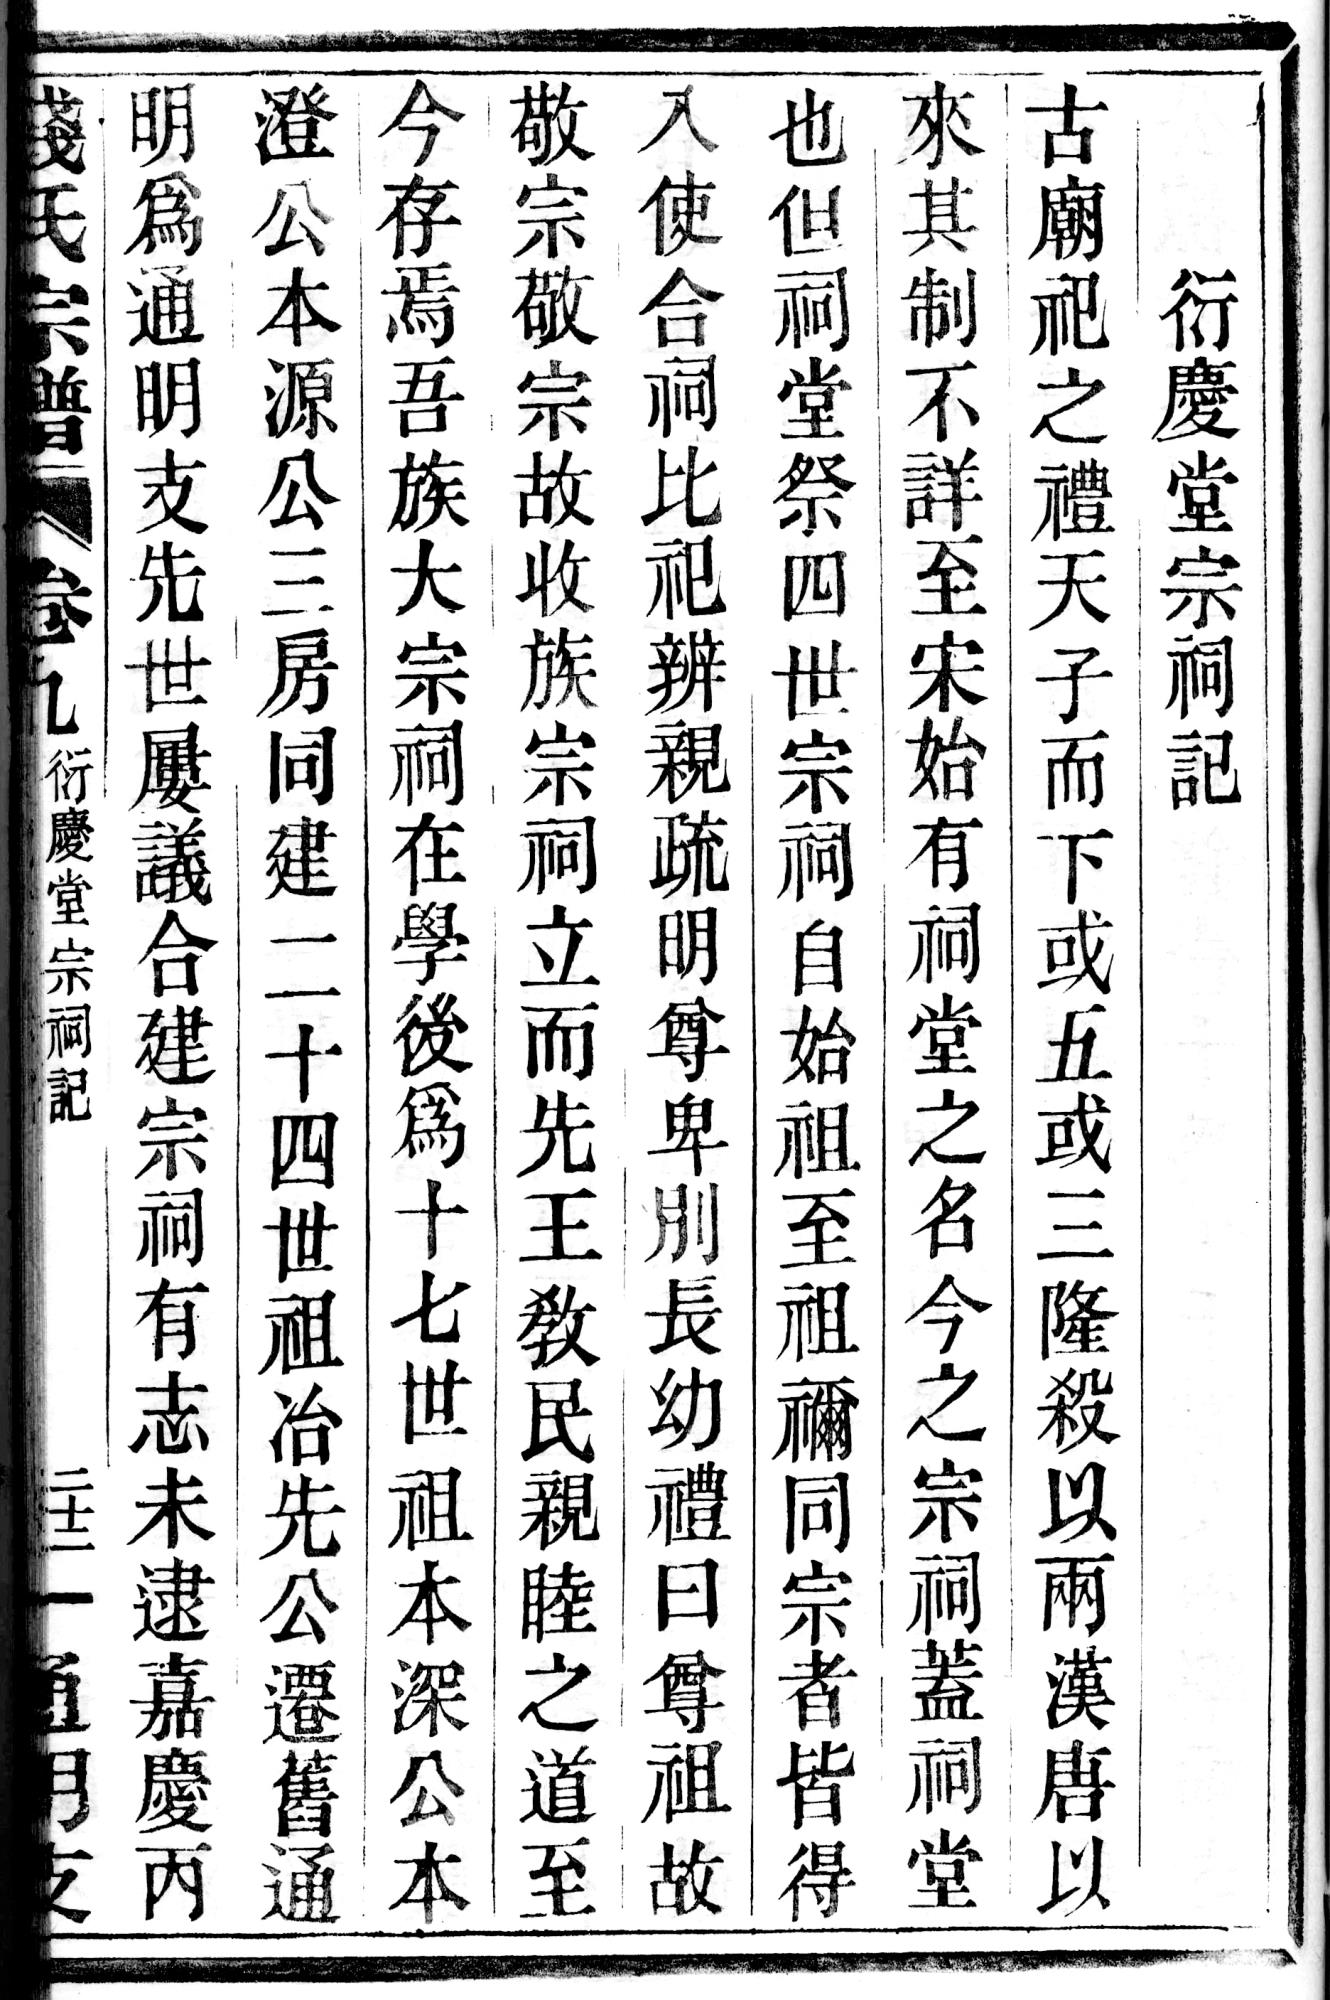 衍慶堂宗祠記
古廟祀之禮天子而下或五或三隆殺以兩漢唐以
來其制不詳至宋始有祠堂之名今之宗祠蓋祠堂
也但祠堂祭四世宗祠自始祖至祖禰同宗者皆得
入使合祠比祀辨親疏明尊卑別長幼禮曰尊祖故
敬宗敬宗故收族宗祠立而先王敎民親睦之道至
今存焉吾族大宗祠在學後爲十七世祖本深公本
澄公本源公三房同建二十四世祖冶先公遷舊通
明爲通明支先世屢議合建宗祠有志未逮嘉慶丙
錢氏宗譜 卷九 衍慶堂宗祠記 二十三 通明支